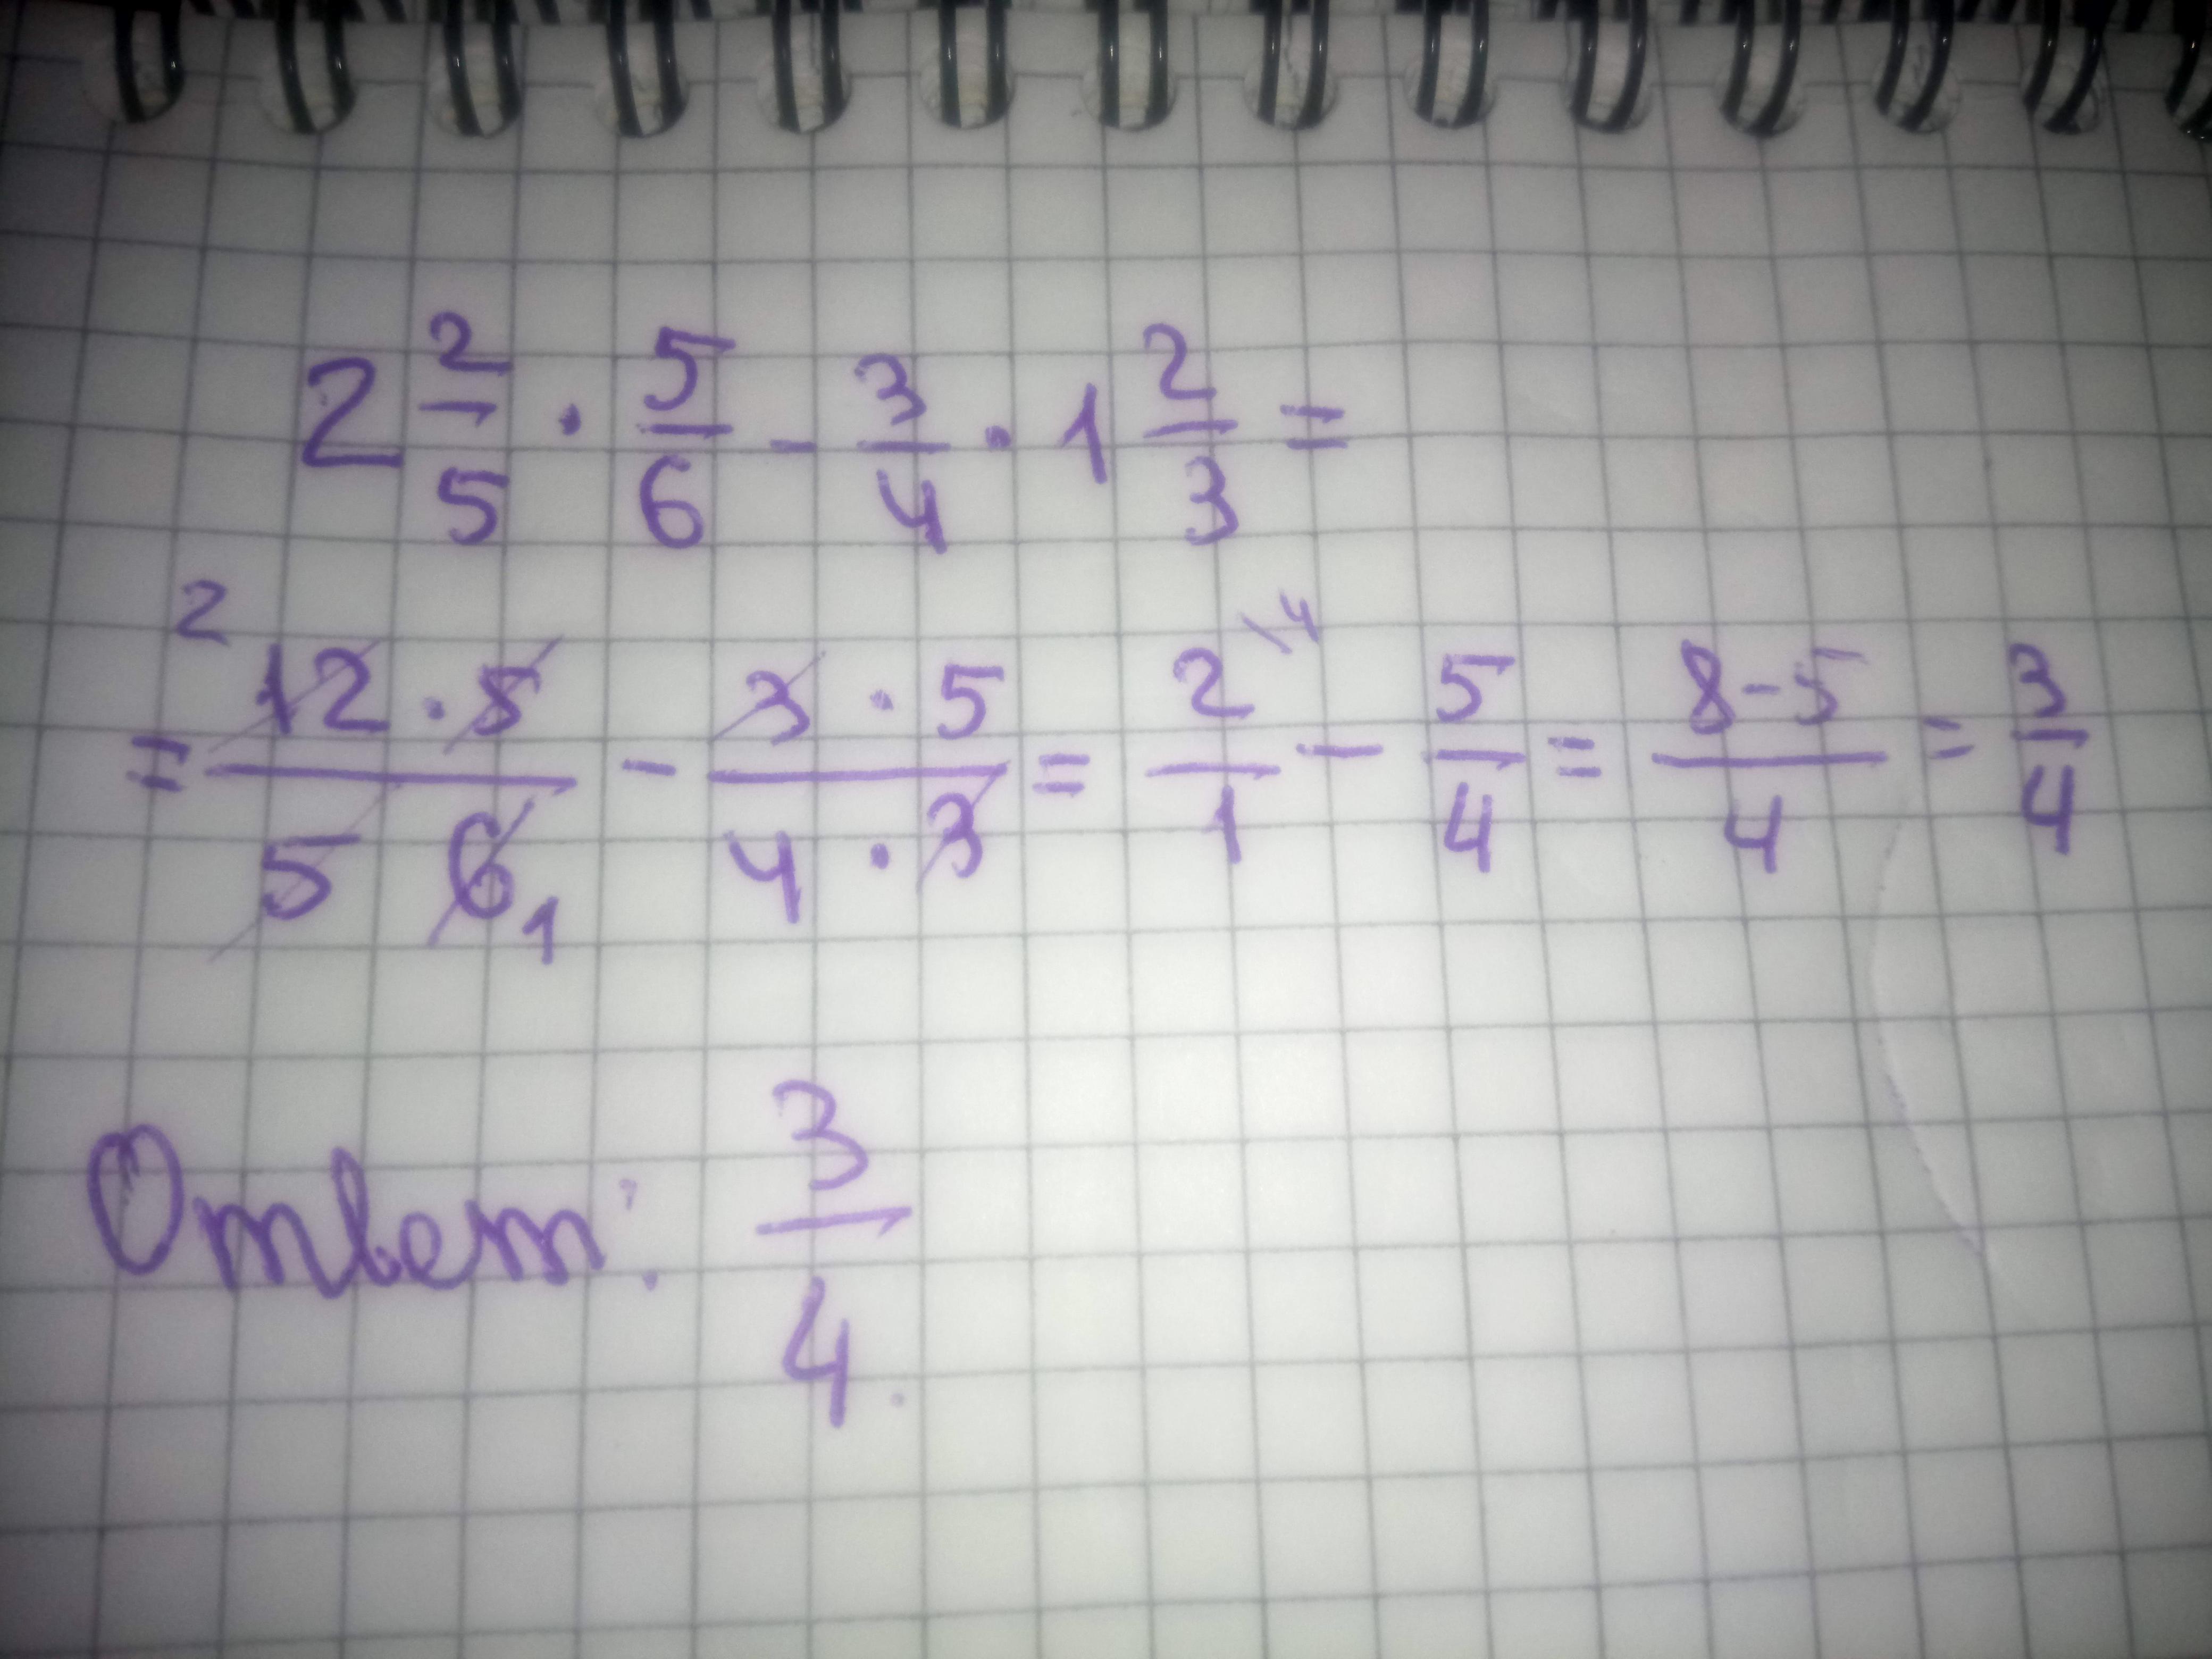 2 2/5 · 5/6 - 3/4 · 1 2/3 =
= 12 · 5 / 5 6 - 3 · 5 / 4 · 3 = 2/1 \4 - 5/4 = 8-5/4 = 3/4
Ответ: 3/4.